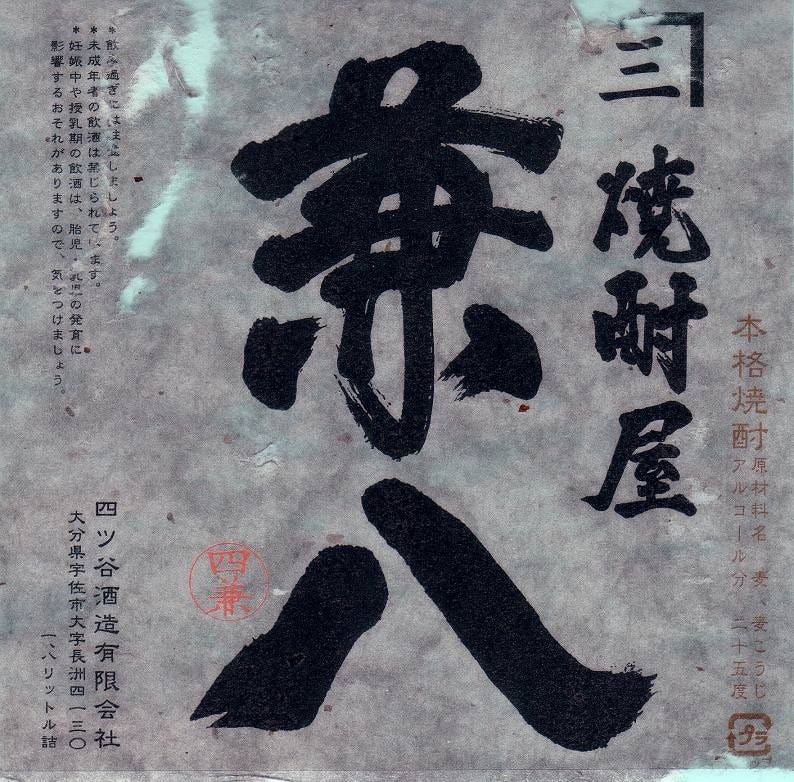 本格焼酎
原材料名 麦、麦こうじ
アルコール分 二十五度
プラ
三
焼酎屋
兼八
四ツ兼
四ツ谷酒造有限会社
大分県宇佐市大字長洲四一三〇
一、八リットル詰
*飲み過ぎにはしましょう。
*未成年者の飲酒は禁じられています。
*妊娠中や授乳期の飲酒は、胎児・乳児の発育に
影響するおそれがありますので、気をつけましょう。